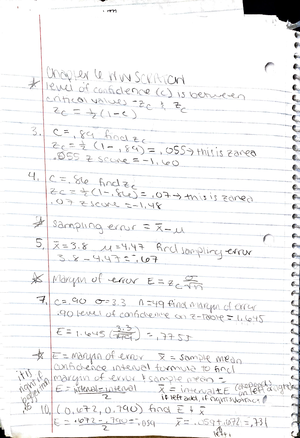 Chapter 6 HW Section
* level of confidence (c) is between
critical values -zc & zc
zc = ½(1-c)
3. c = .89 find zc
zc = ½(1-.89) = .055 → this is z area
.055 z score = -1.60
4. c = .86 find zc
zc = ½(1-.86) = .07 → this is z area
.07 z score = -1.48
* sampling error = x̄ - μ
5. x̄ = 3.8 μ = 4.47 find sampling error
3.8 - 4.47 = -.67
* Margin of error E = zc σ/√n
7. c = .90 σ = 3.3 n = 49 find margin of error
.90 level of confidence on z-table = 1.645
E = 1.645 (3.3/√49) = .7755
* E = margin of error x̄ = sample mean
confidence interval formula to find
margin of error & sample mean =
E = interval - interval / 2 x̄ = interval + E
is left add, if right subtract
10. (0.672, 0.790) find E & x̄
E = .672 - .790 / 2 = .059 x̄ = .059 + .672 = .731